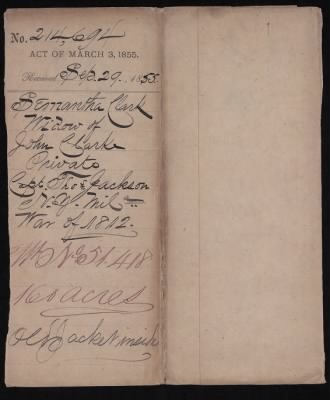 No. 214,694
ACT OF MARCH 3, 1855.
Received Sep. 29. 1855.
Semantha Clark
Widow of
John Clarke
Private
Capt. Thos Jackson
N.Y. Mil
War of 1812.
Wt No 51418
160 acres
Old Jacket inside